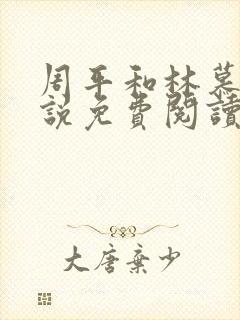 周平和林慕
說免費閱讀
大唐棄少